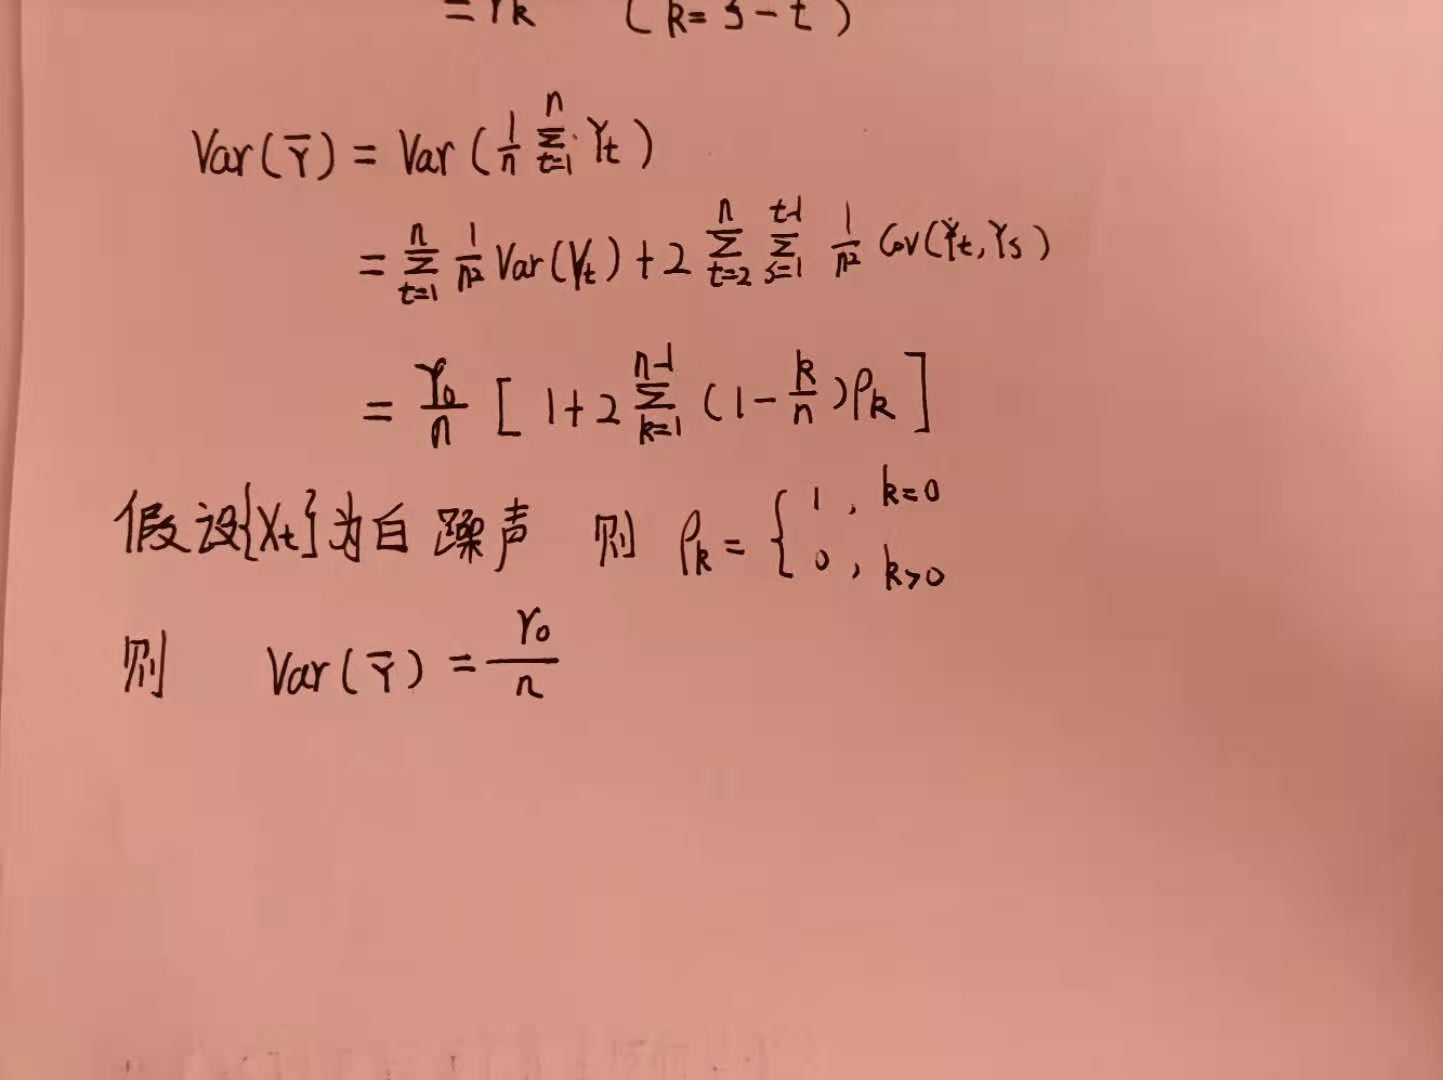 = γk (k = s - t)
Var(Ȳ) = Var(1/n ∑_{t=1}^{n} Yt)
= ∑_{t=1}^{n} 1/n² Var(Yt) + 2 ∑_{t=2}^{n} ∑_{s=1}^{t-1} 1/n² Cov(Yt, Ys)
= γ0/n [1 + 2 ∑_{k=1}^{n-1} (1 - k/n) ρk]
假设{Xt}为白躁声 则 ρk = { 1, k=0
0, k>0
则 Var(Ȳ) = γ0/n